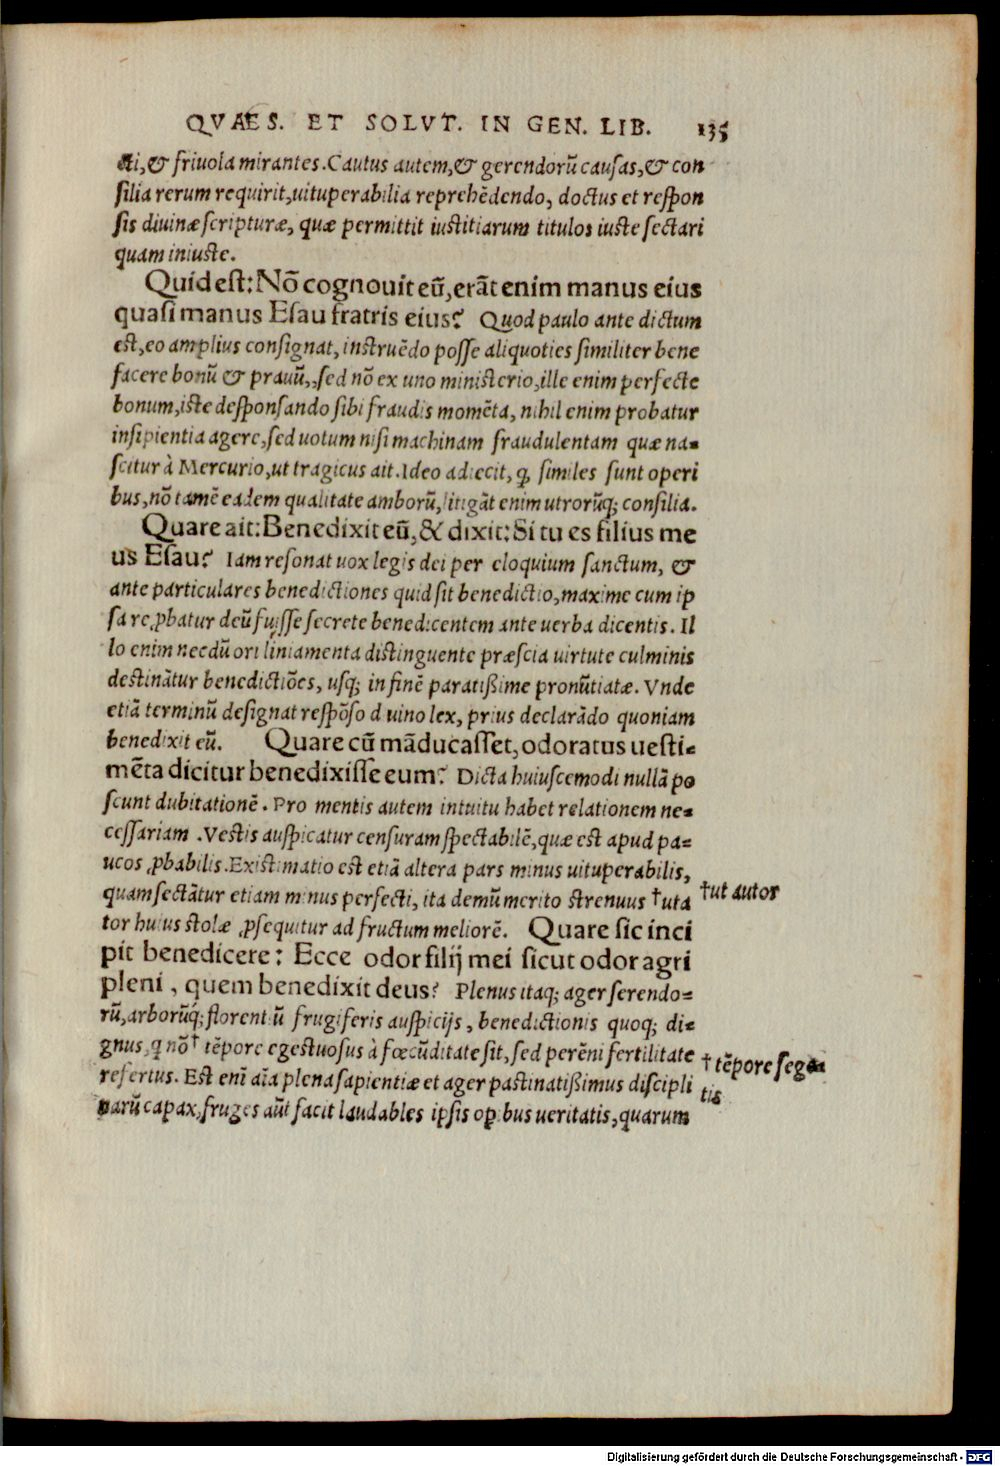 QVAES. ET SOLVT. IN GEN. LIB. 135
cti, & friuola mirantes. Cautus autem, & gerendorũ causas, & con
silia rerum requirit, uituperabilia reprehẽdendo, doctus et respon
sis diuinæ scripturæ, quæ permittit iustitiarum titulos iuste sectari
quam iniuste.
Quid est: Nõ cognouit eũ, erãt enim manus eius
quasi manus Esau fratris eius? Quod paulo ante dictum
est, eo amplius consignat, instruẽdo posse aliquoties similiter bene
facere bonũ & prauũ,, sed nõ ex uno ministerio, ille enim perfecte
bonum, iste desponsando sibi fraudis momẽta, nihil enim probatur
insipientia agere, sed uotum nisi machinam fraudulentam quæ na-
scitur à Mercurio, ut tragicus ait. Ideo adiecit, ꝙ similes sunt operi
bus, nõ tamẽ eadem qualitate amborũ, litigãt enim utrorũq; consilia.
Quare ait: Benedixit eũ, & dixit: Si tu es filius me
us Esau? Iam resonat uox legis dei per eloquium sanctum, &
ante particulares benedictiones quid sit benedictio, maxime cum ip
sa re ꝓbatur deũ fuisse secrete benedicentem ante uerba dicentis. Il
lo enim necdũ ori liniamenta distinguente præscia uirtute culminis
destinãtur benedictiões, usq; in finẽ paratißime pronũtiatæ. Vnde
etiã terminũ designat respõso diuino lex, prius declarãdo quoniam
benedixit eũ. Quare cũ mãducasset, odoratus uesti-
mẽta dicitur benedixisse eum? Dicta huiuscemodi nullã po
scunt dubitationẽ. Pro mentis autem intuitu habet relationem ne-
cessariam. Vestis auspicatur censuram spectabilẽ, quæ est apud pa-
ucos ꝓbabilis. Existimatio est etiã altera pars minus uituperabilis,
quam sectãtur etiam minus perfecti, ita demũ merito strenuus †uta †ut autor
tor huius stolæ ꝓsequitur ad fructum meliorẽ. Quare sic inci
pit benedicere: Ecce odor filij mei sicut odor agri
pleni, quem benedixit deus? Plenus itaq; ager serendo-
rũ, arborũq́; florentiũ frugiferis auspicijs, benedictionis quoq; di-
gnus, q nõ† tẽpore egestuosus à fœcũditate sit, sed perẽni fertilitate †tẽpore sege
refertus. Est enĩ aĩa plena sapientiæ et ager pastinatißimus discipli tis
narũ capax, fruges aũt facit laudables ipsis oꝑibus ueritatis, quarum
Digitalisierung gefördert durch die Deutsche Forschungsgemeinschaft - DFG